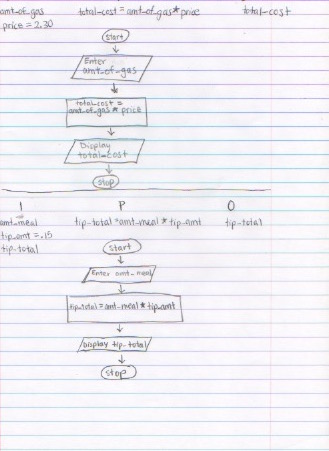 amt_of_gas total_cost = amt_of_gas * price total_cost
price = 2.30
Start
Enter
amt_of_gas
total_cost =
amt_of_gas * price
Display
total_cost
Stop
I P O
amt_meal tip_total = amt_meal * tip_amt tip_total
tip_amt = .15
tip_total
Start
Enter amt_meal
tip_total = amt_meal * tip_amt
Display tip_total
Stop